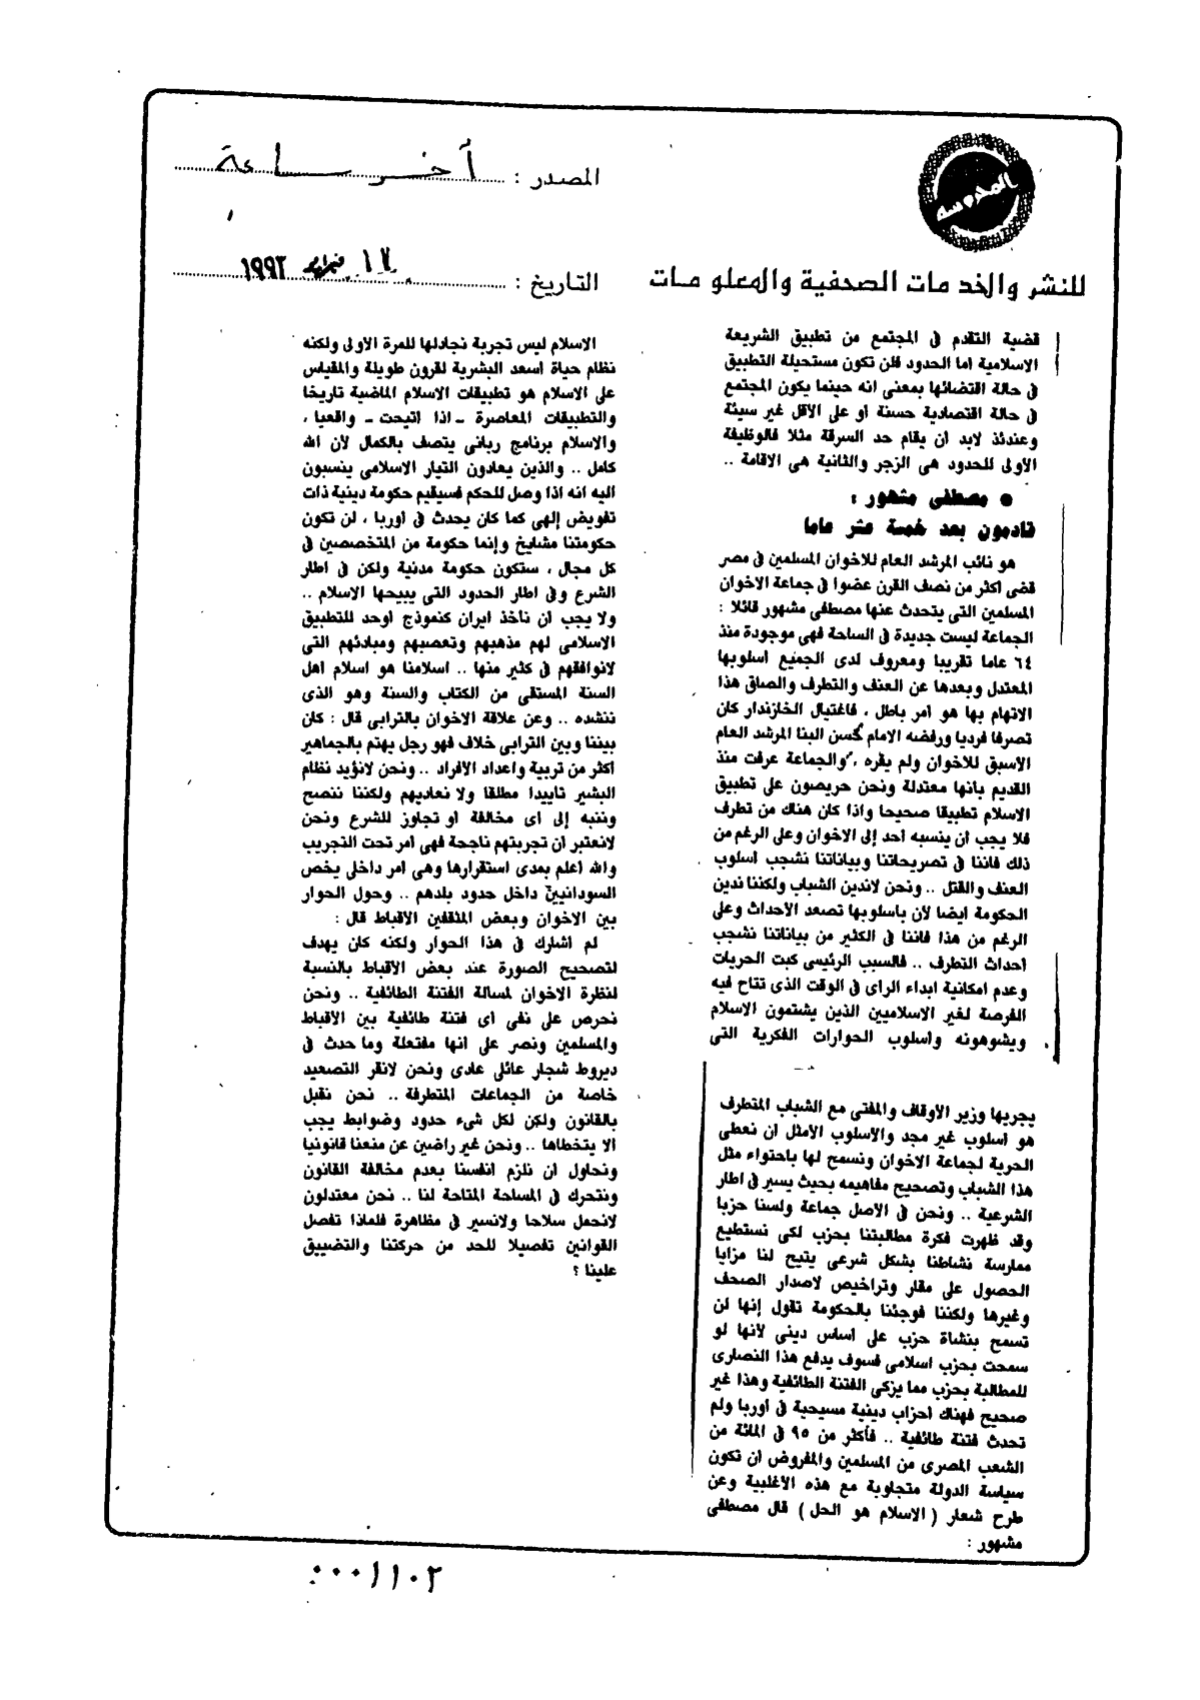 المصدر : آخر ساعة
المحروسة
للنشر والخدمات الصحفية والمعلومات
التاريخ : ١٩٩٢
قضية التقدم فى المجتمع من تطبيق الشريعة
الاسلامية اما الحدود فلن تكون مستحيلة التطبيق
فى حالة اقتضائها بمعنى انه حينما يكون المجتمع
فى حالة اقتصادية حسنة او على الاقل غير سيئة
وعندئذ لابد ان يقام حد السرقة مثلا فالوظيفة
الاولى للحدود هى الزجر والثانية هى الاقامة ..
● مصطفى مشهور :
قادمون بعد خمسة عشر عاما
هو نائب المرشد العام للاخوان المسلمين فى مصر
قضى اكثر من نصف القرن عضوا فى جماعة الاخوان
المسلمين التى يتحدث عنها مصطفى مشهور قائلا :
الجماعة ليست جديدة فى الساحة فهى موجودة منذ
٦٤ عاما تقريبا ومعروف لدى الجميع اسلوبها
المعتدل وبعدها عن العنف والتطرف والصاق هذا
الاتهام بها هو امر باطل ، فاغتيال الخازندار كان
تصرفا فرديا ورفضه الامام حسن البنا المرشد العام
الاسبق للاخوان ولم يقره ، والجماعة عرفت منذ
القديم بأنها معتدلة ونحن حريصون على تطبيق
الاسلام تطبيقا صحيحا واذا كان هناك من تطرف
فلا يجب ان ينسبه احد إلى الاخوان وعلى الرغم من
ذلك فاننا فى تصريحاتنا وبياناتنا نشجب اسلوب
العنف والقتل .. ونحن لاندين الشباب ولكننا ندين
الحكومة ايضا لأن باسلوبها تصعد الأحداث وعلى
الرغم من هذا فاننا فى الكثير من بياناتنا نشجب
أحداث التطرف .. فالسبب الرئيسى كبت الحريات
وعدم امكانية ابداء الراى فى الوقت الذى تتاح فيه
الفرصة لغير الاسلاميين الذين يشتمون الاسلام
ويشوهونه واسلوب الحوارات الفكرية التى
يجريها وزير الأوقاف والمفتى مع الشباب المتطرف
هو اسلوب غير مجد والاسلوب الأمثل ان نعطى
الحرية لجماعة الاخوان ونسمح لها باحتواء مثل
هذا الشباب وتصحيح مفاهيمه بحيث يسير فى اطار
الشرعية .. ونحن فى الاصل جماعة ولسنا حزبا
وقد ظهرت فكرة مطالبتنا بحزب لكى نستطيع
ممارسة نشاطنا بشكل شرعى يتيح لنا مزايا
الحصول على مقار وتراخيص لاصدار الصحف
وغيرها ولكننا فوجئنا بالحكومة تقول إنها لن
تسمح بنشأة حزب على أساس دينى لأنها لو
سمحت بحزب اسلامى فسوف يدفع هذا النصارى
للمطالبة بحزب مما يزكى الفتنة الطائفية وهذا غير
صحيح فهناك أحزاب دينية مسيحية فى أوربا ولم
تحدث فتنة طائفية .. فأكثر من ٩٥ فى المائة من
الشعب المصرى من المسلمين والمفروض ان تكون
سياسة الدولة متجاوبة مع هذه الأغلبية وعن
طرح شعار ( الاسلام هو الحل ) قال مصطفى
مشهور :
الاسلام ليس تجربة نجادلها للمرة الاولى ولكنه
نظام حياة اسعد البشرية لقرون طويلة والمقياس
على الاسلام هو تطبيقات الاسلام الماضية تاريخا
والتطبيقات المعاصرة ـ اذا اتيحت ـ واقعيا ،
والاسلام برنامج ربانى يتصف بالكمال لأن الله
كامل .. والذين يعادون التيار الاسلامى ينسبون
اليه انه اذا وصل للحكم فسيقيم حكومة دينية ذات
تفويض إلهى كما كان يحدث فى اوربا ، لن تكون
حكومتنا مشايخ وإنما حكومة من المتخصصين فى
كل مجال ، ستكون حكومة مدنية ولكن فى اطار
الشرع وفى اطار الحدود التى يبيحها الاسلام ..
ولا يجب ان ناخذ ايران كنموذج اوحد للتطبيق
الاسلامى لهم مذهبهم وتعصبهم ومبادئهم التى
لانوافقهم فى كثير منها .. اسلامنا هو اسلام اهل
السنة المستقى من الكتاب والسنة وهو الذى
ننشده .. وعن علاقة الاخوان بالترابى قال : كان
بيننا وبين الترابى خلاف فهو رجل يهتم بالجماهير
اكثر من تربية واعداد الأفراد .. ونحن لانؤيد نظام
البشير تأييدا مطلقا ولا نعاديهم ولكننا ننصح
وننبه إلى اى مخالفة او تجاوز للشرع ونحن
لانعتبر أن تجربتهم ناجحة فهى امر تحت التجريب
والله اعلم بمدى استقرارها وهى امر داخلى يخص
السودانيين داخل حدود بلدهم .. وحول الحوار
بين الاخوان وبعض المثقفين الأقباط قال :
لم اشارك فى هذا الحوار ولكنه كان يهدف
لتصحيح الصورة عند بعض الأقباط بالنسبة
لنظرة الاخوان لمسالة الفتنة الطائفية .. ونحن
نحرص على نفى اى فتنة طائفية بين الأقباط
والمسلمين ونصر على انها مفتعلة وما حدث فى
ديروط شجار عائلى عادى ونحن لانقر التصعيد
خاصة من الجماعات المتطرفة .. نحن نقبل
بالقانون ولكن لكل شىء حدود وضوابط يجب
الا يتخطاها .. ونحن غير راضين عن منعنا قانونيا
ونحاول ان نلزم انفسنا بعدم مخالفة القانون
ونتحرك فى المساحة المتاحة لنا .. نحن معتدلون
لانحمل سلاحا ولانسير فى مظاهرة فلماذا تفصل
القوانين تفصيلا للحد من حركتنا والتضييق
علينا ؟
٠٠٠١١٠٢